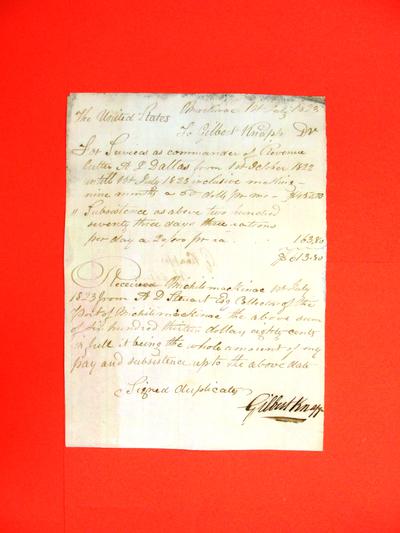 Mackinac 1st July 1823
The United States
To Gilbert Knapp Dr
For Services as commander of Revenue
Cutter A J Dallas from 1st October 1822
until 1st July 1823 inclusive making
nine month a 50 dolls pr mo - $450.00
" Subsistence as above two hundred
seventy three days three rations
per day a 20/100 pr ra 163.80
$613.80
Received Michilimackinac 1st July
1823 from A D Steuart Esq Collector of the
Port of Michilimackinac the above sum
of six hundred thirteen dollars eighty cents
in full it being the whole amount of my
pay and subsistence up to the above date
Signed duplicates
Gilbert Knapp